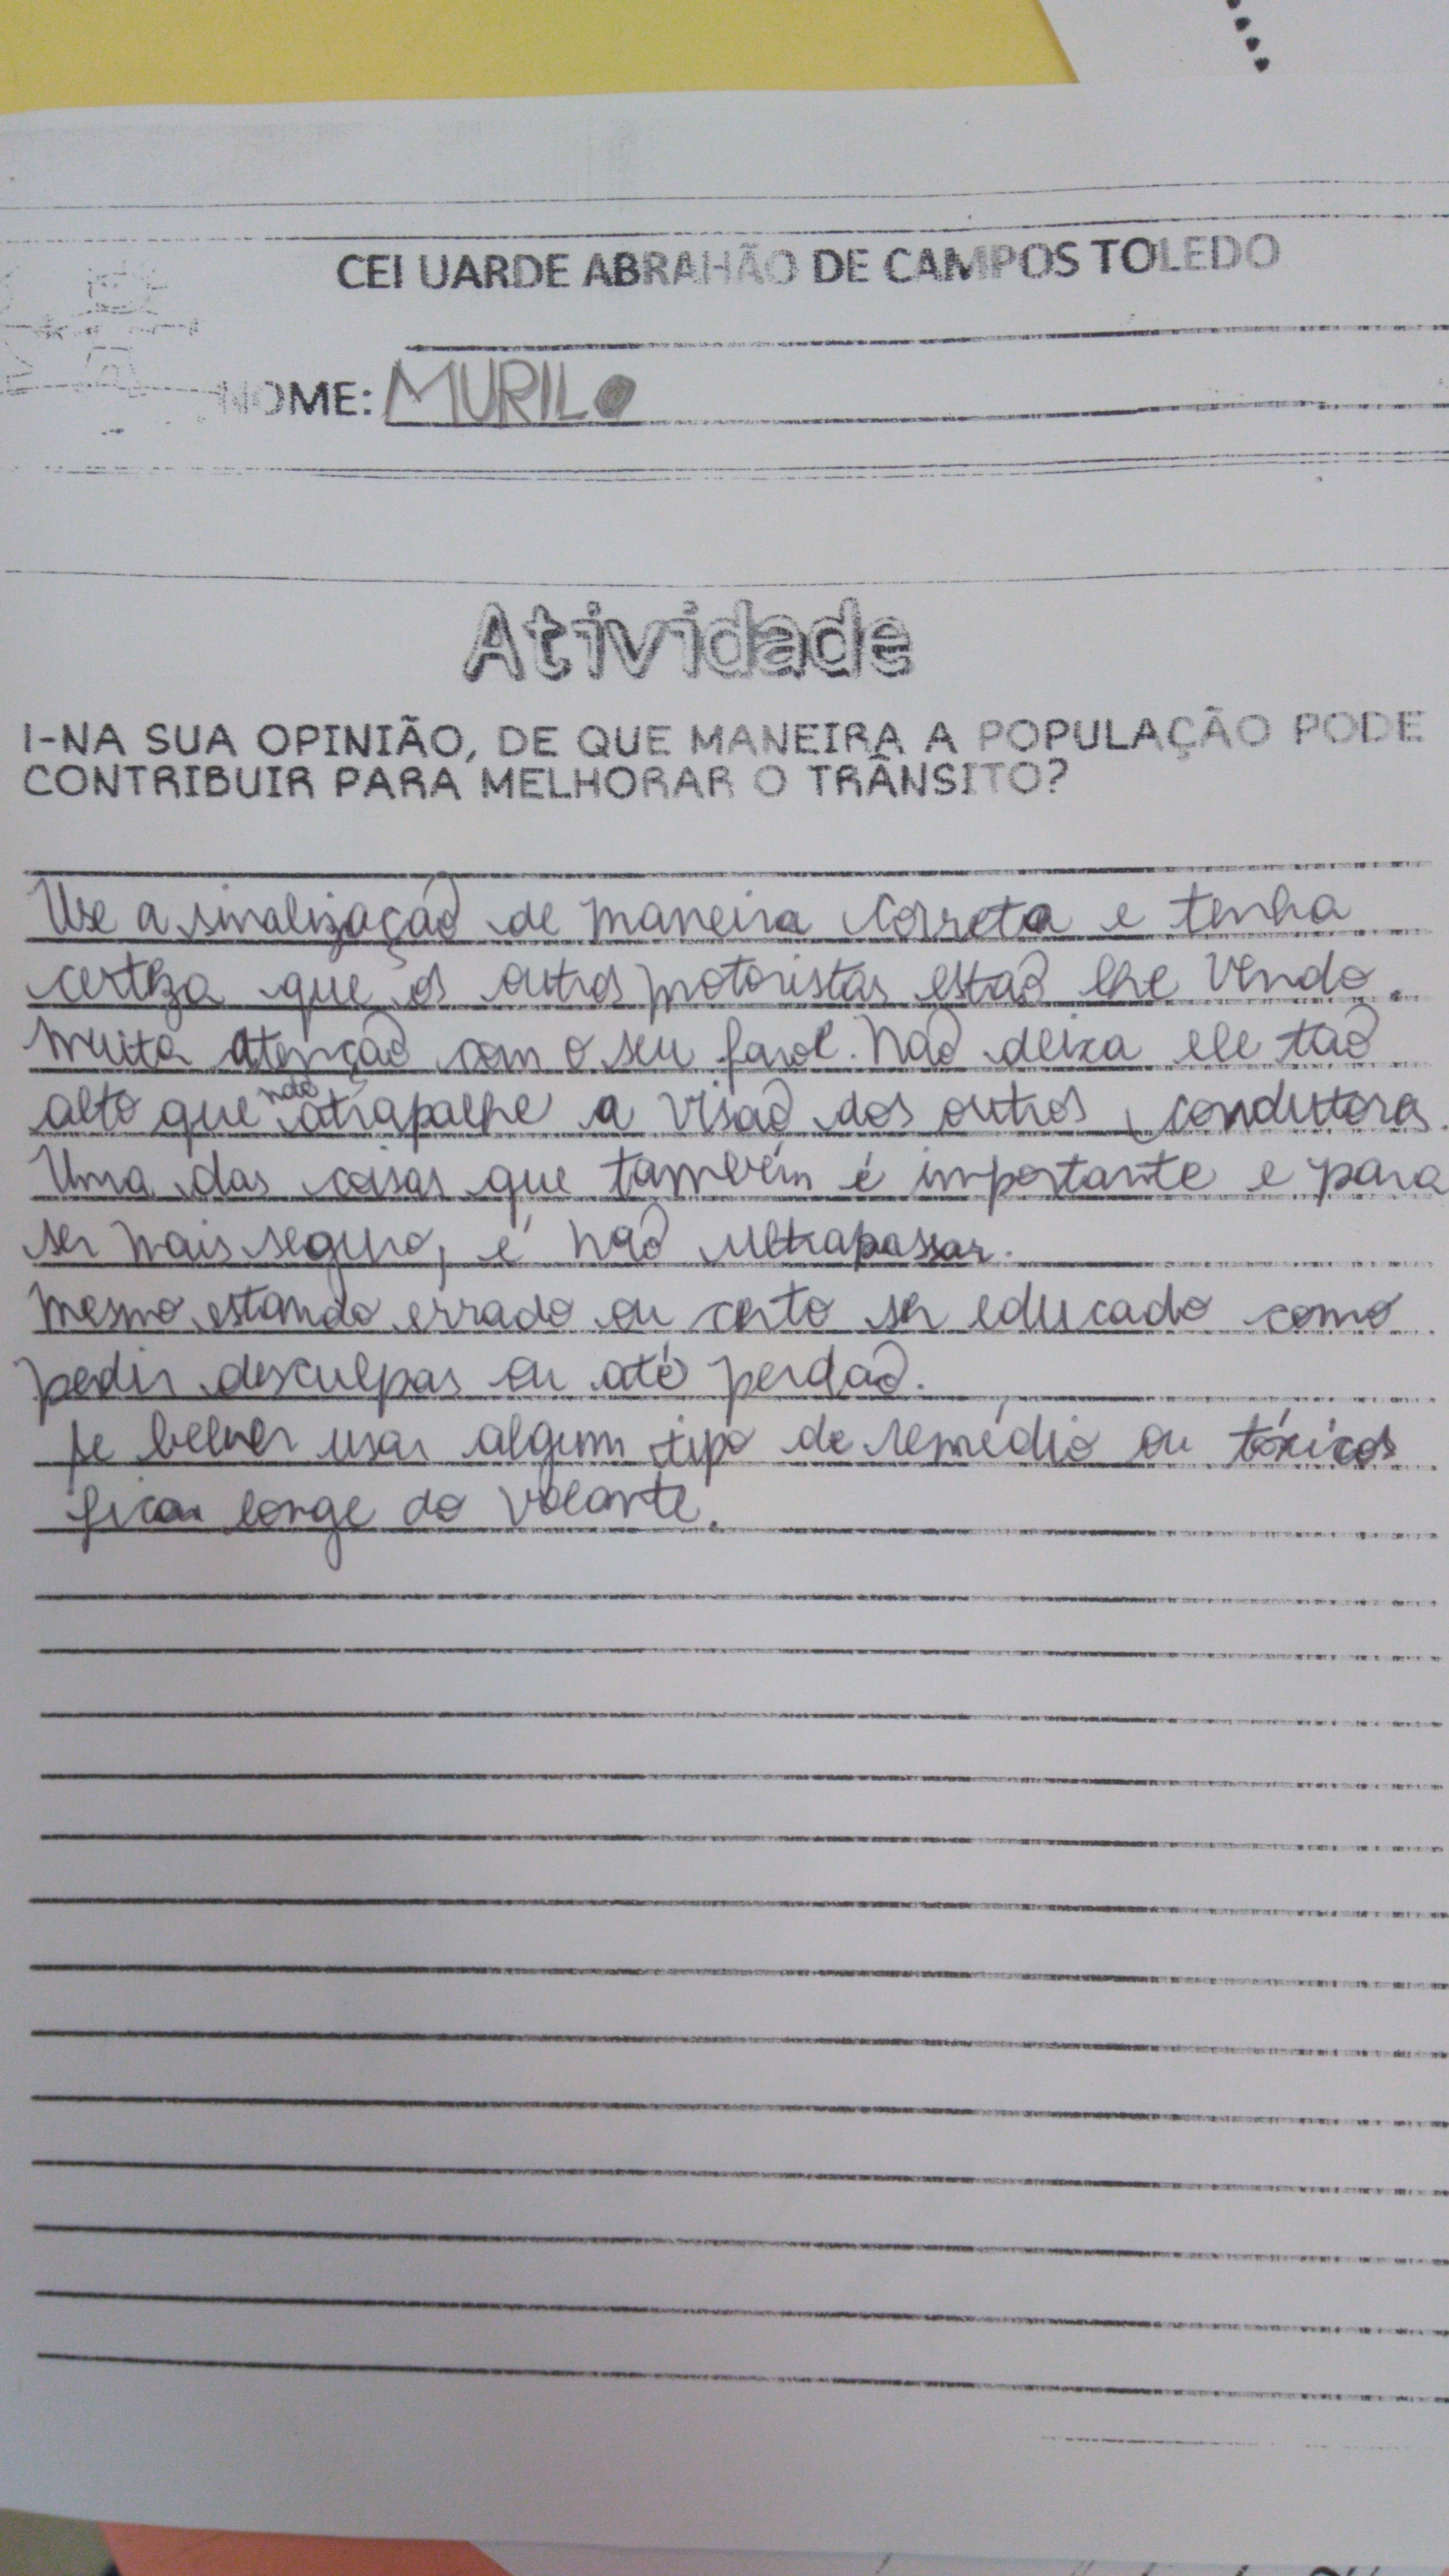 CEI UARDE ABRAHÃO DE CAMPOS TOLEDO
NOME: MURILO
Atividade
1-NA SUA OPINIÃO, DE QUE MANEIRA A POPULAÇÃO PODE
CONTRIBUIR PARA MELHORAR O TRÂNSITO?
Use a sinalização de maneira correta e tenha
certeza que os outros motoristas estão lhe vendo.
Muita atenção com o seu farol. Não deixa ele tão
alto que não atrapalhe a visão dos outros condutores.
Uma das coisas que também é importante e para
ser mais seguro, é não ultrapassar.
Mesmo estando errado ou certo ser educado como
pedir desculpas ou até perdão.
Se beber usar algum tipo de remédio ou tóxicos
ficar longe do volante.